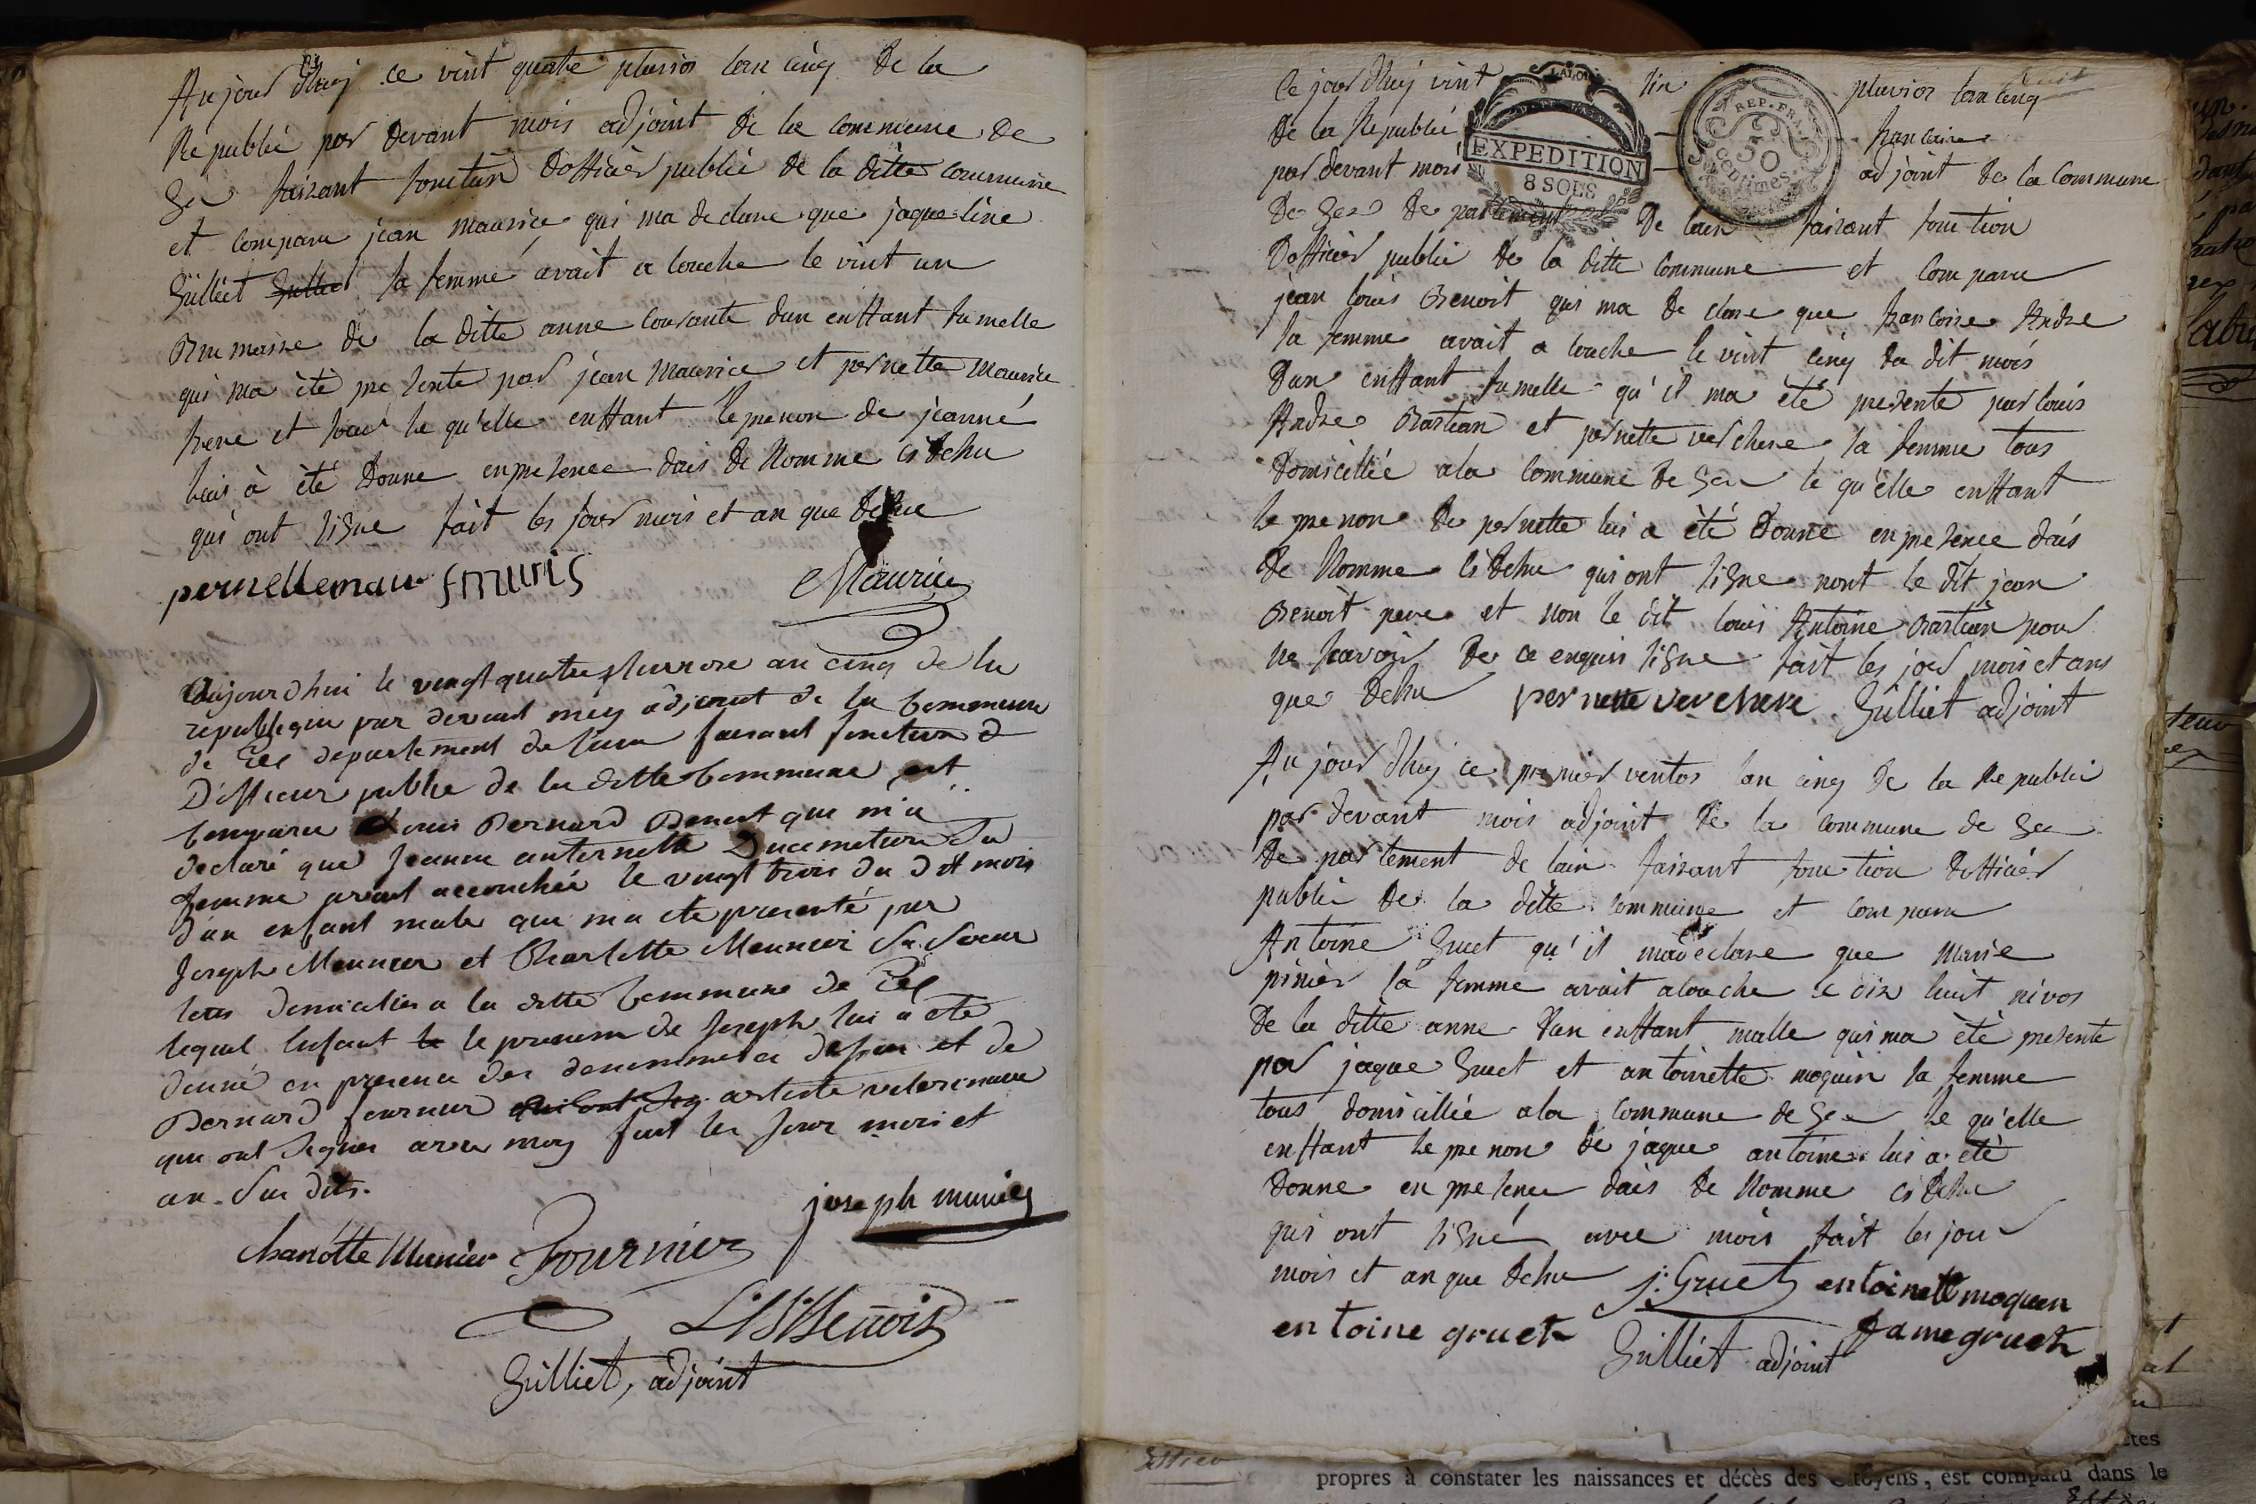 Aujourdhuj ce vint quatre pluvios lan cinq de la
Republi par devant mois adjoint de la commune de
Gex faizant fonction dofficier publié de la ditte commune
et comparu jean maurice qui ma declare que jaqueline
Gilliet Gilliet sa femme avait a couche le vint un
Brumaire de la ditte anne courante dun enffant fumelle
qui ma èté presente par jean maurice et pernette maurice
frere et soeur le qu'elle enffant le prenon de jeanne
luis à èté donne en presence dais de Nomme cidesu
qui ont signe fait les jour mois et an que desue
pernelle mauris
Maurice
Aujourdhui le vingt quatre pluviose an cinq de la
republique par devant moy adjoint de la Commune
de Gex département de lain faisant fonction d
D'officier public de la ditte Commune est
Comparu Louis Bernard Benoit que m'a
declaré que Jeanne anternette Ducimetiere Sa
femme avait accouchée le vingt trois du dit mois
d'un enfant male que ma ete presenté par
Joseph Meunier et Charlotte Meunier Sa Soeur
tous domicilies a la ditte Commune de Gex
lequel Enfant le le prenom de Joseph lui a été
donné en presence des denommés ci dessus et de
Bernard fournier qui ont Sig. artiste veterinaire
qui ont Signés avec moy fait les Jour mois et
an Sus dits.
joseph munier
charlotte Munier Fournier
L: B: Benoit
Gilliet, adjoint
Ce jourdhuj vint Six pluvios lan cinq
de la Republi francaise
par devant mois adjoint de la commune
LALOI
EXPEDITION
8 SOLS
REP. FRA.
50
centimes.
De Gex De partement De lain faizant fonction
Dofficier publié de la ditte commune et comparu
jean louis Benoit qui ma de clare que francoise Andre
sa femme avait a couche le vint cinq du dit mois
Dun enffant fumelle qu'il ma èté presente par louis
Andre Bastian et pernette verchere sa femme tous
Domicillié ala commune de Gex le qu'elle enffant
le prenon de pernette lui a èté donne en presence dais
de Nomme ci desue qui ont signe nont le dit jean
Benoit pere et non le dit louis Antoine Bastian pour
ne savoir de ce enquis signe fait les jour mois et ans
que desu pernette verchere Gilliet adjoint
Au jourdhuj ce premier ventos lan cinq de la Republi
par devant mois adjoint de la commune de Gex
De partement de lain faizant fonction dofficier
publié de la ditte commune et comparu
Antoine Gruet qu'il ma declare que marie
pinier sa femme avait acouche le dix huit nivos
De la ditte anne dun enffant malle qui ma èté presente
par jaque Gruet et antoinette moquin sa femme
tous domicillié ala commune de Gex le qu'elle
enffant le prenon de jaque antoine lui a èté
Donne en presence dais de Nomme ci desu
qui ont signé avec mois fait les jour
mois et an que desue j: Gruet entoinette moquen
entoine gruet fame gruet
Gilliet adjoint
propres à constater les naissances et décès des Citoyens, est comparu dans le